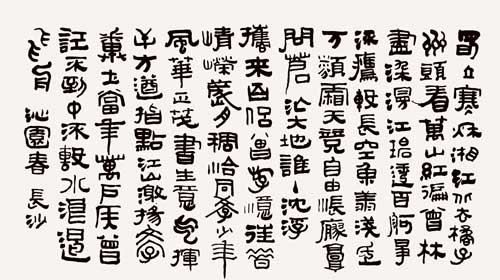 獨立寒秋湘江北去橘子
洲頭看萬山紅遍曾林
盡染漫江碧透百舸爭
流鷹擊長空魚翔淺底
万類霜天競自由悵寥廓
問蒼茫大地誰主沉浮
攜來百侶曾游憶往昔
崢嶸歲月稠恰同學少年
風華正茂書生意氣揮
斥方遒指點江山激揚文字
糞土當年萬户侯曾
記否到中流擊水浪遏
飛舟 沁園春 長沙